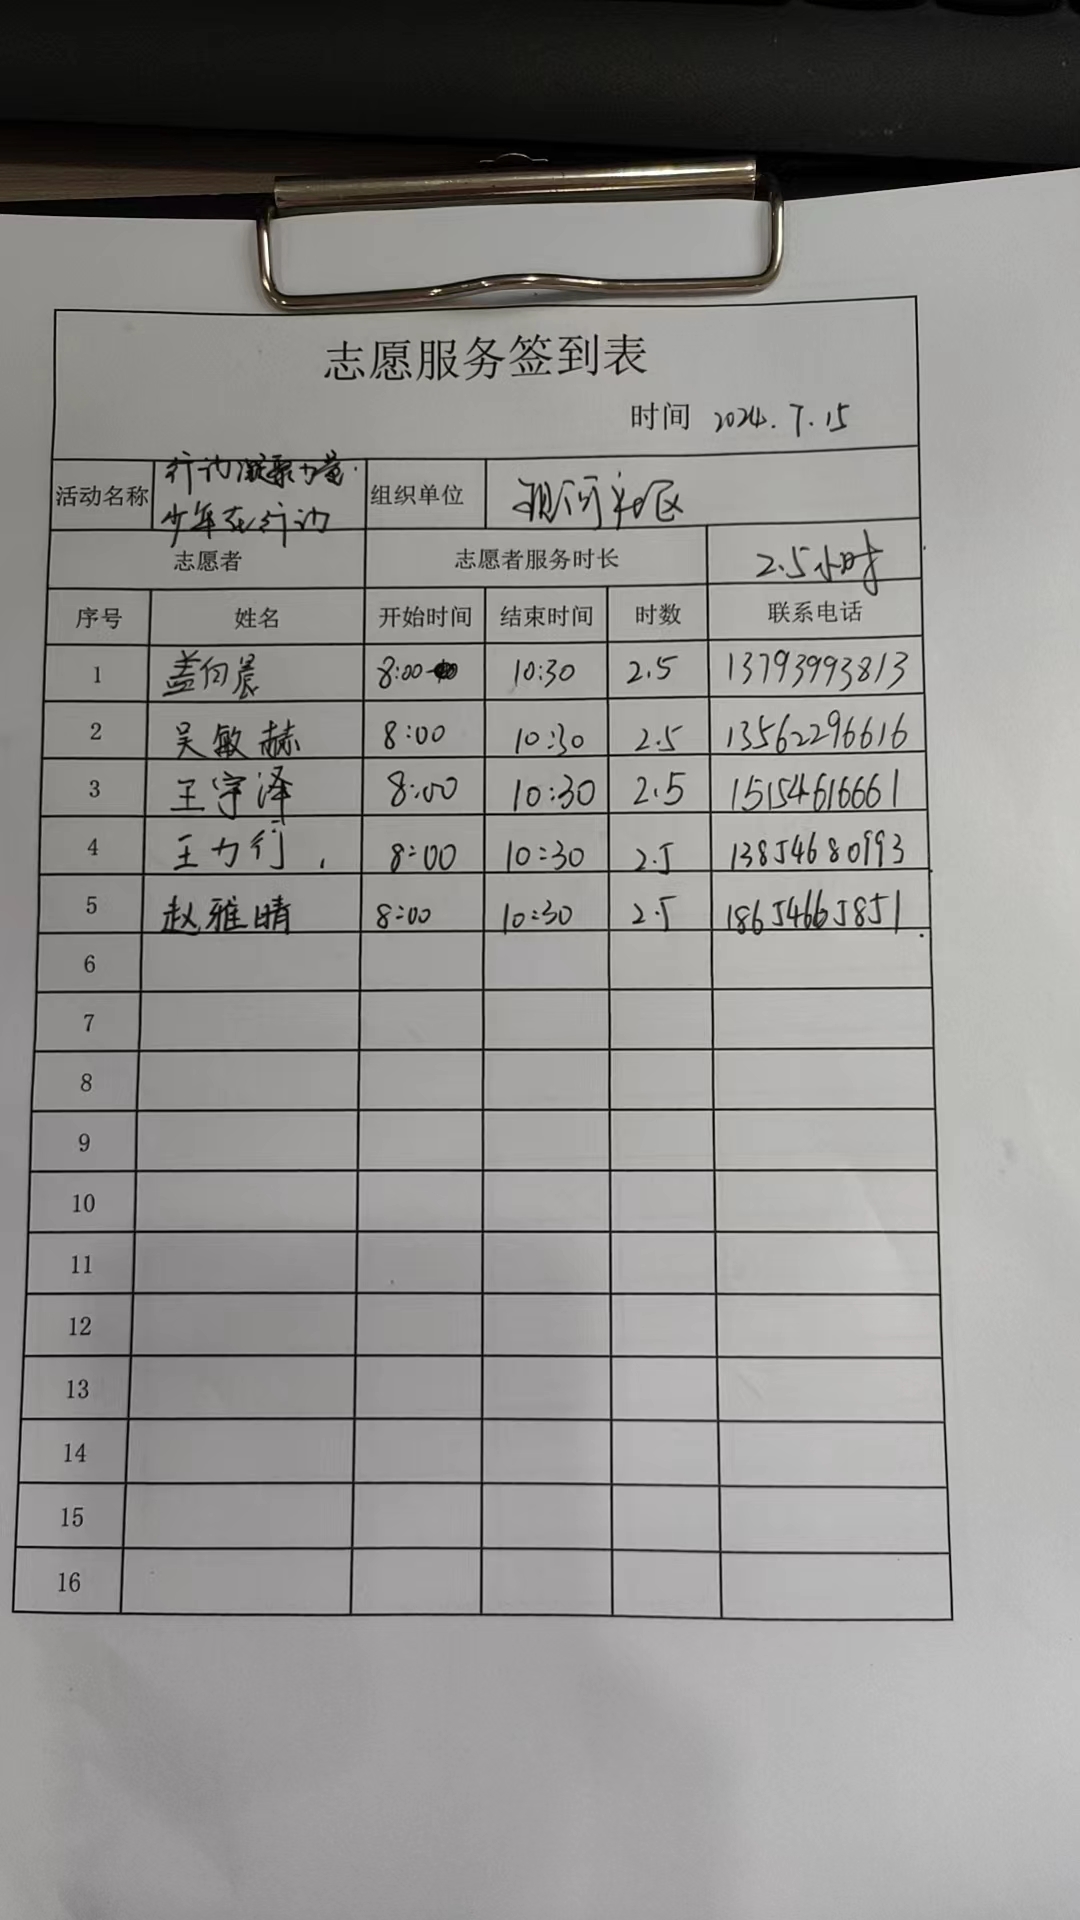 志愿服务签到表
时间 2024.7.15
活动名称 行动凝聚力量· 组织单位 现河社区
少年在行动
志愿者 志愿者服务时长 2.5小时
序号 姓名 开始时间 结束时间 时数 联系电话
1 盖向晨 8:00 10:30 2.5 13793993813
2 吴敏赫 8:00 10:30 2.5 13562296616
3 王宇泽 8:00 10:30 2.5 15154616661
4 王力行 8:00 10:30 2.5 13854680993
5 赵雅晴 8:00 10:30 2.5 18654665851
6
7
8
9
10
11
12
13
14
15
16